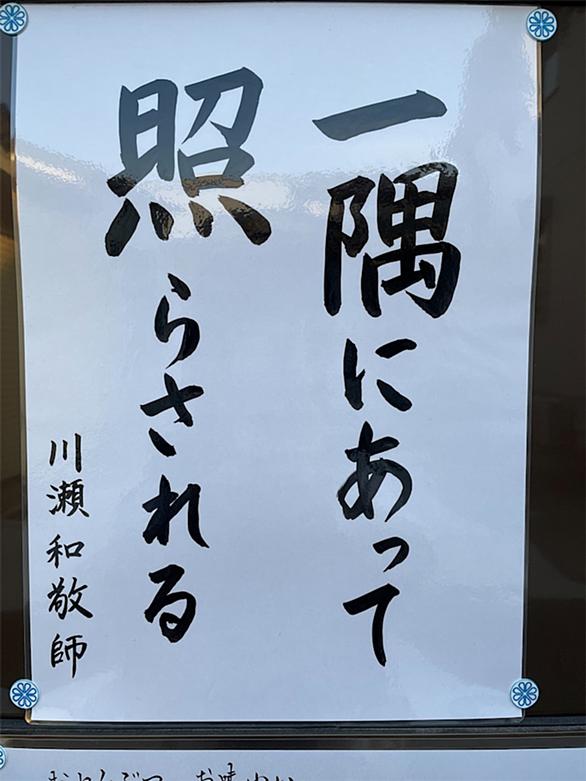 一隅にあって
照らされる
川瀬和敬師